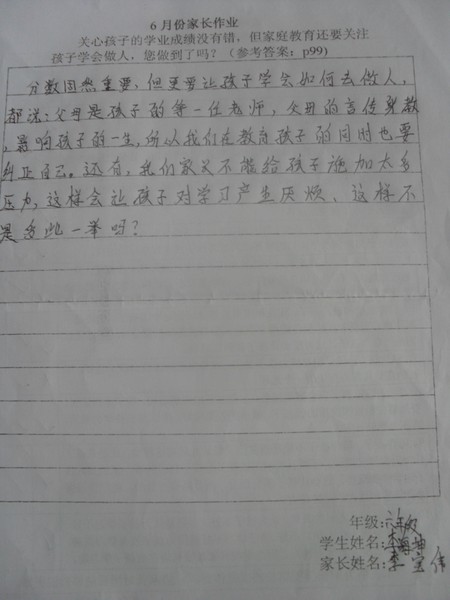 6月份家长作业
关心孩子的学业成绩没有错，但家庭教育还要关注
孩子学会做人，您做到了吗？（参考答案：p99）
分数固然重要，但更要让孩子学会如何去做人，
都说：父母是孩子的第一位老师，父母的言传身教
，影响孩子的一生，所以我们在教育孩子的同时也要
纠正自己。还有，我们家长不能给孩子施加太多
压力，这样会让孩子对学习产生厌烦、这样不
是多此一举吗？
年级：六年级
学生姓名：李
家长姓名：李宝伟